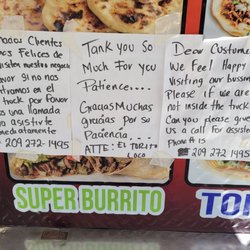 mados Clientes
mos Felices de
visiten nuestro negocio
avor si no nos
ntramos en el
truck por Favor
nos una llamada
a asistirte
mediatamente
209 272-1495
Thank you So
Much For you
Patience....
Gracias Muchas
gracias por su
Paciencia...
ATTE: EL TORITO
LOCO
Dear Custome
We Feel Happy
Visiting our busine
Please if we are
not inside the truck
Can you please give
us a call for assista
Phone # is
209 272-1495
SUPER BURRITO
TOR